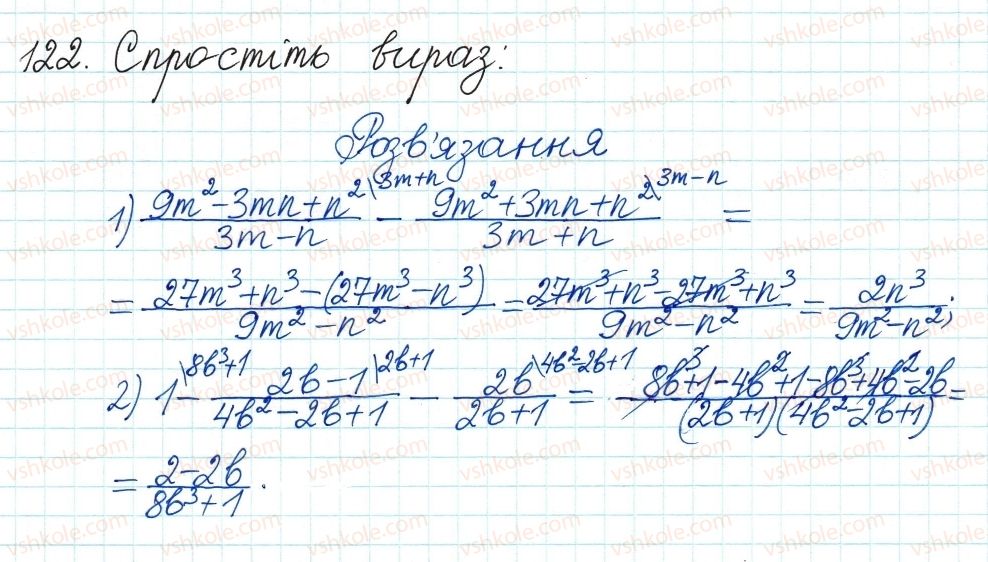 122. Спростіть вираз:
Розв'язання
1) (9m² - 3mn + n²)/(3m - n) \3m+n - (9m² + 3mn + n²)/(3m + n) \3m-n =
= (27m³ + n³ - (27m³ - n³))/(9m² - n²) = (27m³ + n³ - 27m³ + n³)/(9m² - n²) = 2n³/(9m² - n²);
2) 1 \8b³+1 - (2b - 1)/(4b² - 2b + 1) \2b+1 - 2b/(2b + 1) \4b²-2b+1 = (8b³ + 1 - 4b² + 1 - 8b³ + 4b² - 2b)/((2b + 1)(4b² - 2b + 1)) =
= (2 - 2b)/(8b³ + 1).
vshkole.com